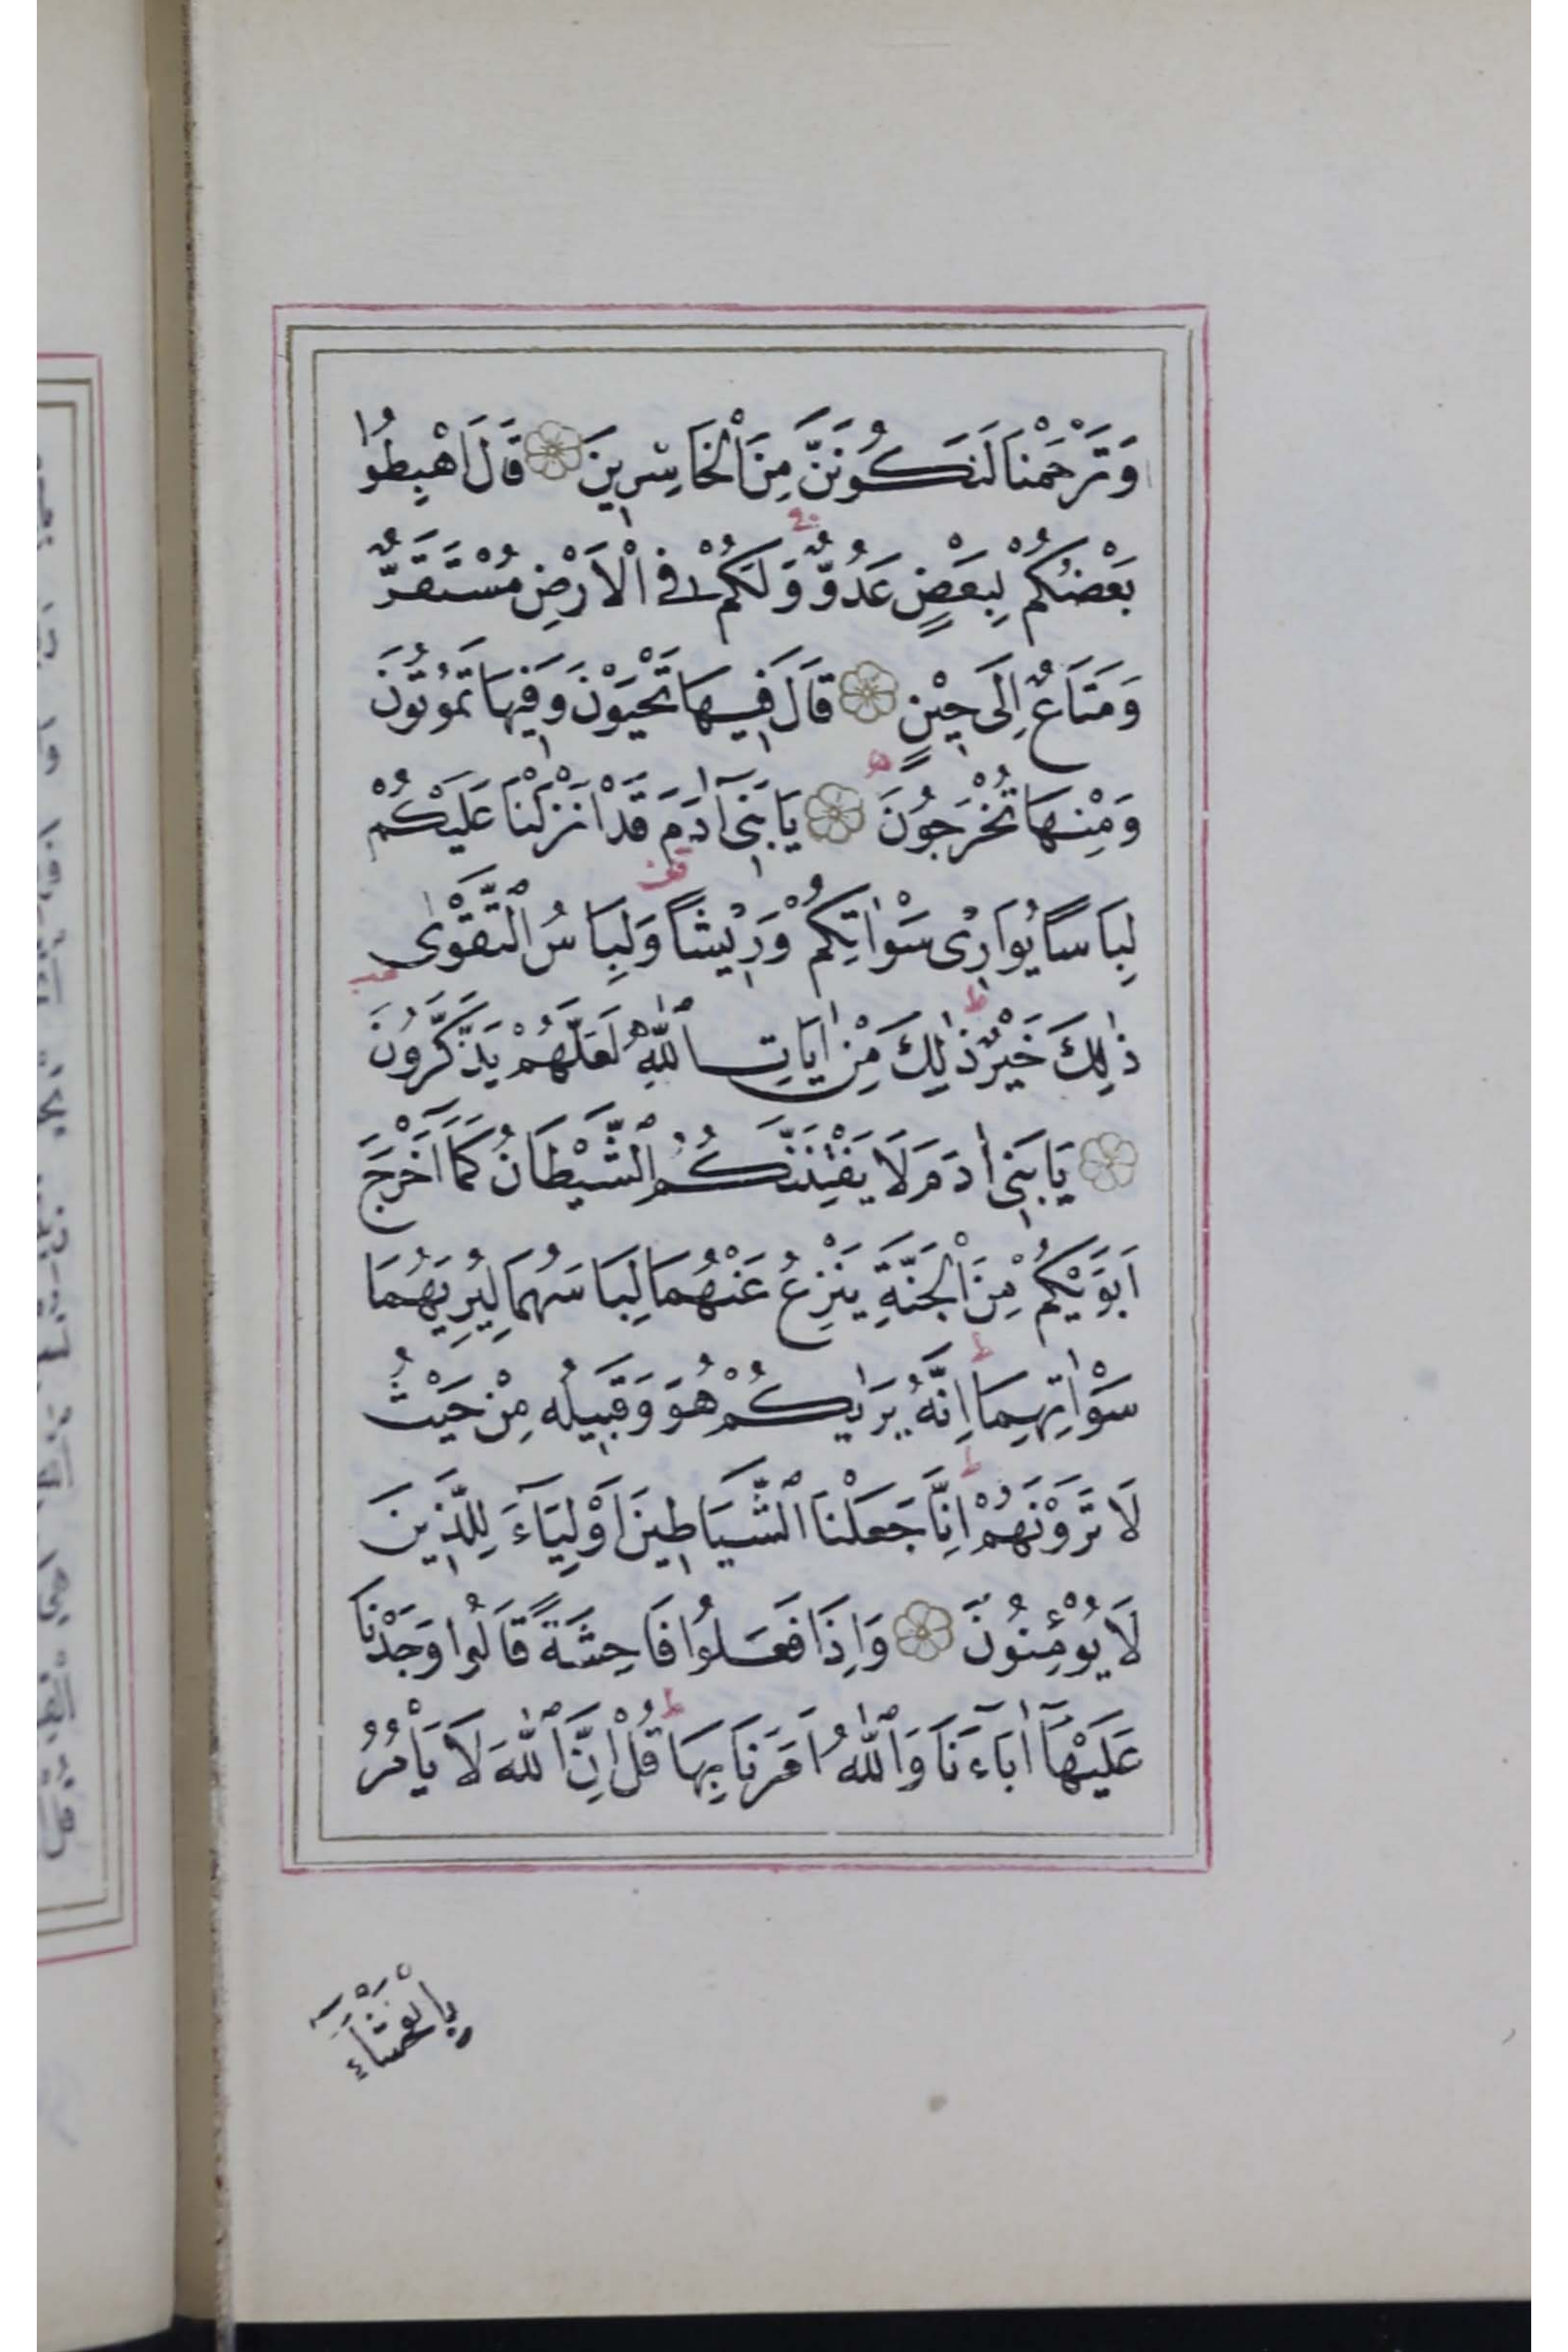 وَتَرْحَمْنَا لَنَكُونَنَّ مِنَ الْخَاسِرِينَ قَالَ اهْبِطُوا
بَعْضُكُمْ لِبَعْضٍ عَدُوٌّ وَلَكُمْ فِي الْاَرْضِ مُسْتَقَرٌّ
وَمَتَاعٌ اِلَى حِينٍ قَالَ فِيهَا تَحْيَوْنَ وَفِيهَا تَمُوتُونَ
وَمِنْهَا تُخْرَجُونَ يَا بَنِي آدَمَ قَدْ اَنْزَلْنَا عَلَيْكُمْ
لِبَاسًا يُوَارِي سَوْاٰتِكُمْ وَرِيشًا وَلِبَاسُ التَّقْوٰى
ذٰلِكَ خَيْرٌ ذٰلِكَ مِنْ اٰيَاتِ اللّٰهِ لَعَلَّهُمْ يَذَّكَّرُونَ
يَا بَنِي اٰدَمَ لَا يَفْتِنَنَّكُمُ الشَّيْطَانُ كَمَا اَخْرَجَ
اَبَوَيْكُمْ مِنَ الْجَنَّةِ يَنْزِعُ عَنْهُمَا لِبَاسَهُمَا لِيُرِيَهُمَا
سَوْاٰتِهِمَا اِنَّهُ يَرٰيكُمْ هُوَ وَقَبِيلُهُ مِنْ حَيْثُ
لَا تَرَوْنَهُمْ اِنَّا جَعَلْنَا الشَّيَاطِينَ اَوْلِيَآءَ لِلَّذِينَ
لَا يُؤْمِنُونَ وَاِذَا فَعَلُوا فَاحِشَةً قَالُوا وَجَدْنَا
عَلَيْهَآ اٰبَآءَنَا وَاللّٰهُ اَمَرَنَا بِهَا قُلْ اِنَّ اللّٰهَ لَا يَاْمُرُ
بِالْفَحْشَآءِ